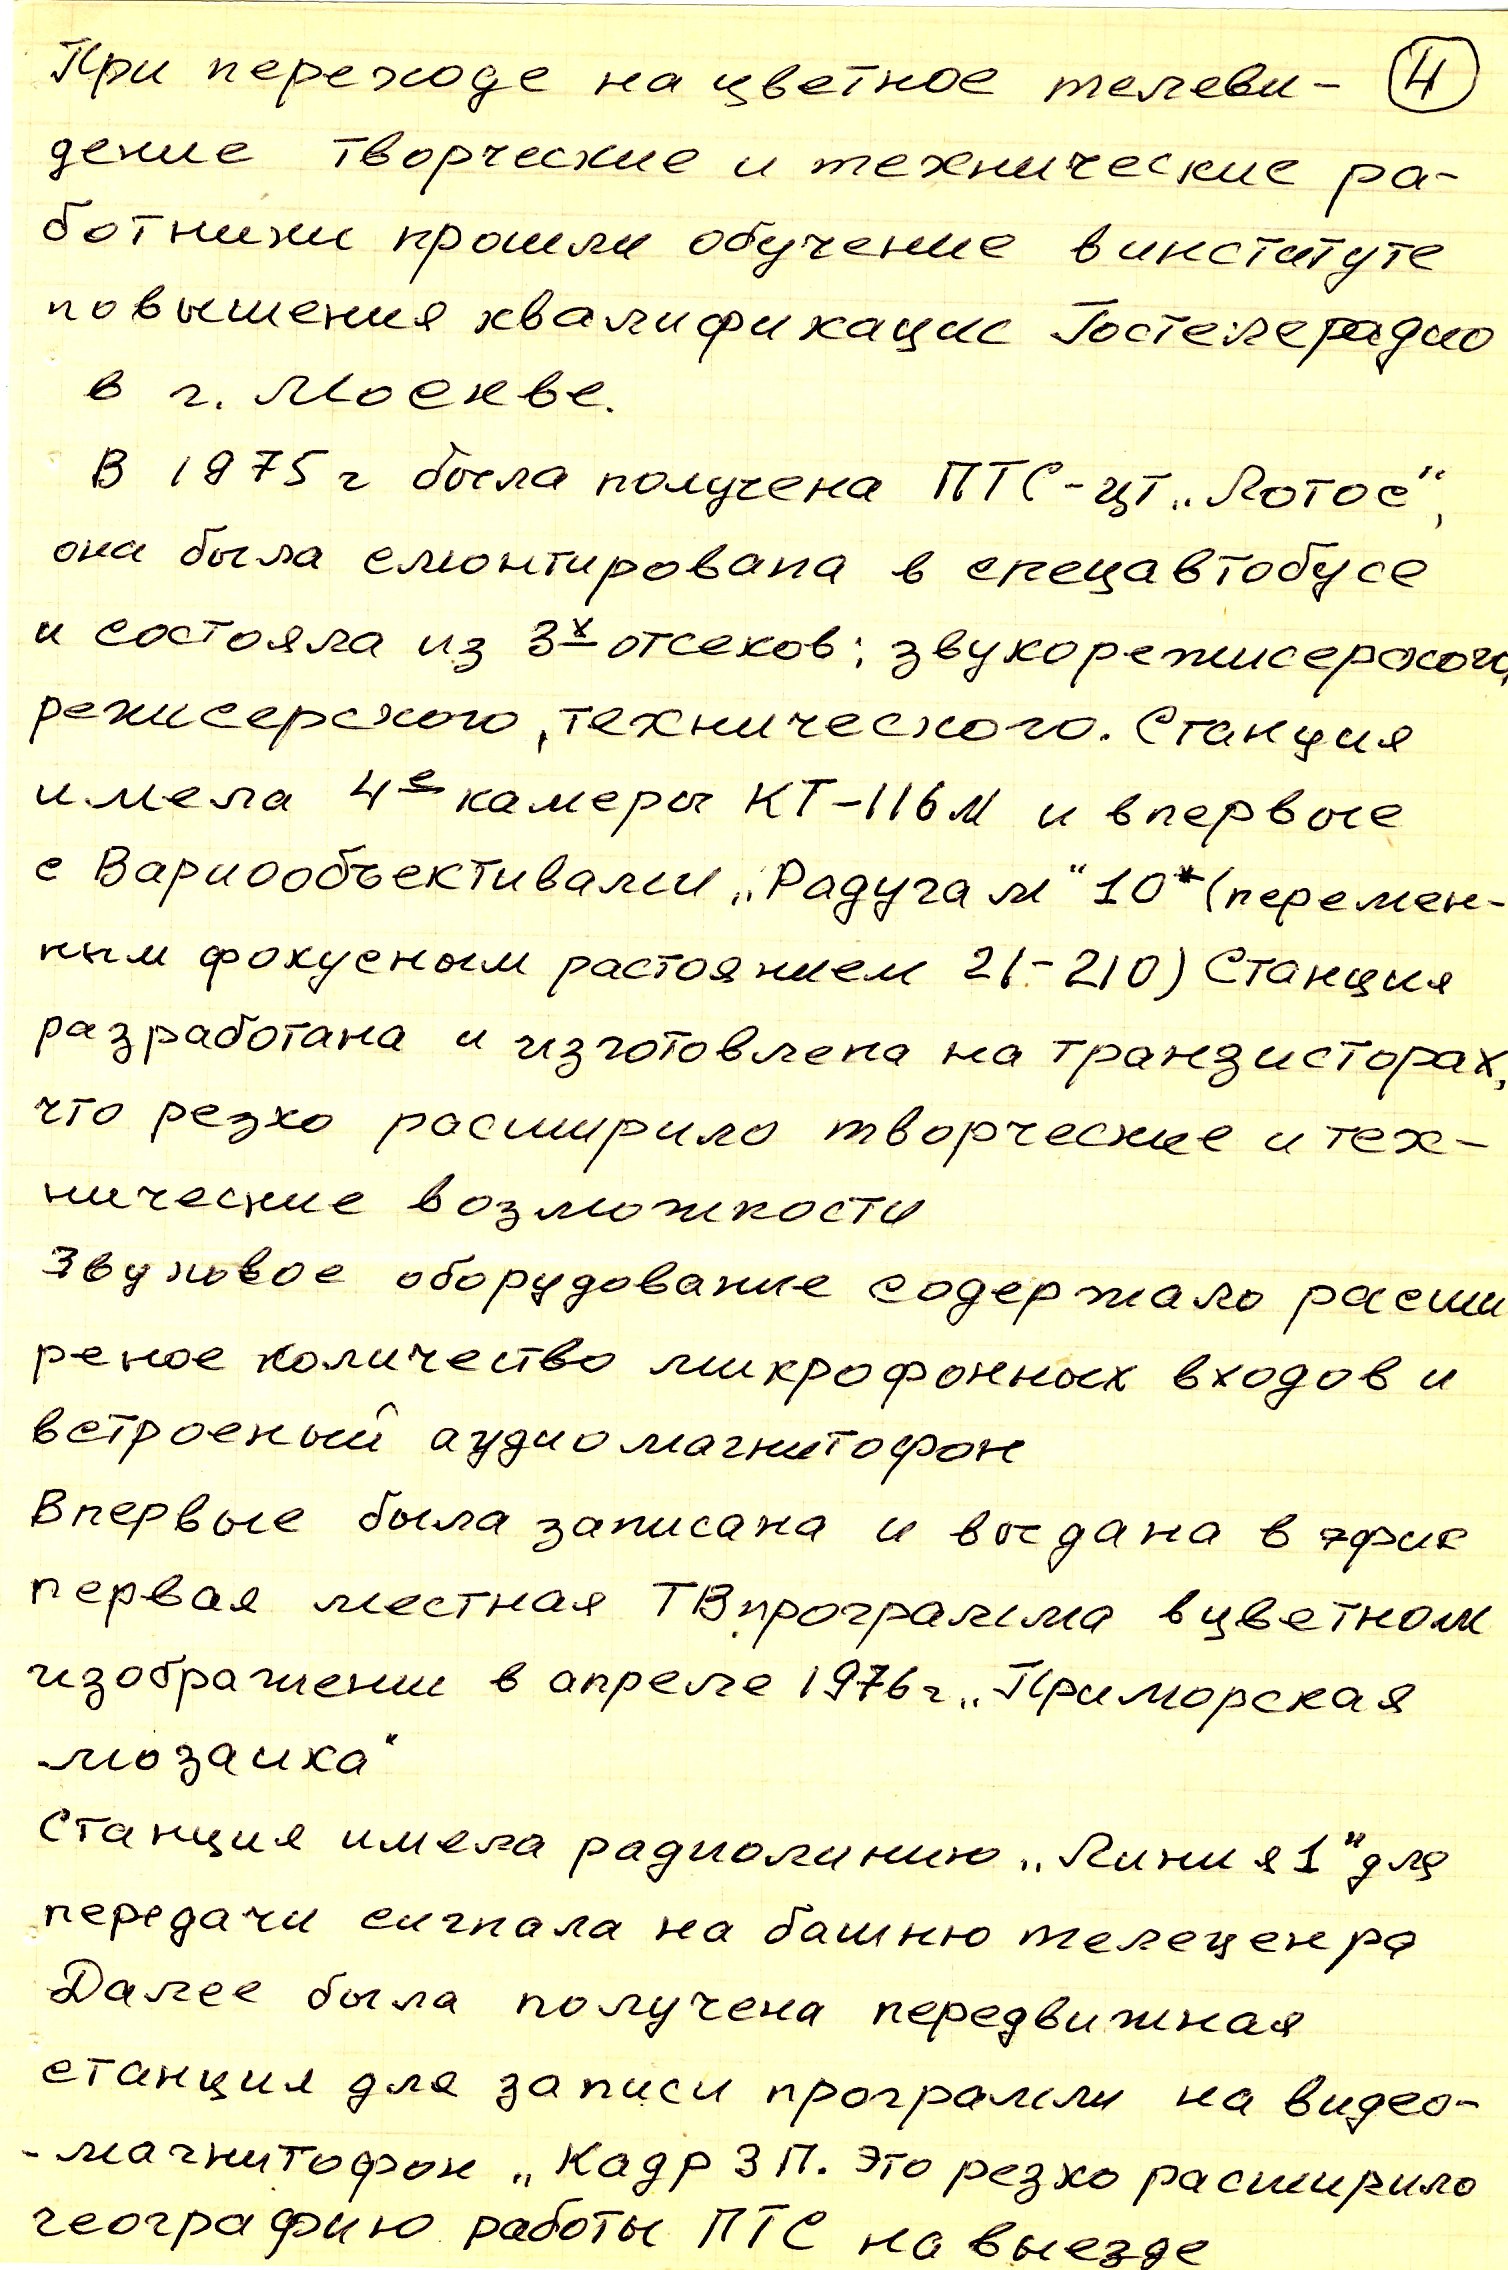 При переходе на цветное телеви- 4
дение творческие и технические ра-
ботники прошли обучение в институте
повышения квалификации Гостелерадио
в г. Москве.
В 1975 г была получена ПТС-цт „Лотос",
она была смонтирована в спецавтобусе
и состояла из 3х отсеков: звукорежисерского,
режисерского, технического. Станция
имела 4е камеры КТ-116м и впервые
с Вариообъективами „Радуга м" 10* (перемен-
ным фокусным растоянием 21-210) Станция
разработана и изготовлена на транзисторах,
что резко расширило творческие и тех-
нические возможности
Звуковое оборудование содержало расши
реное количество микрофонных входов и
встроеный аудиомагнитофон
Впервые была записана и выдана в эфир
первая местная ТВ программа в цветном
изображении в апреле 1976 г „Приморская
мозаика"
Станция имела радиолинию „Линия 1" для
передачи сигнала на башню телеценра
Далее была получена передвижная
станция для записи программ на видео-
-магнитофон „Кадр 3П. Это резко расширило
географию работы ПТС на выезде